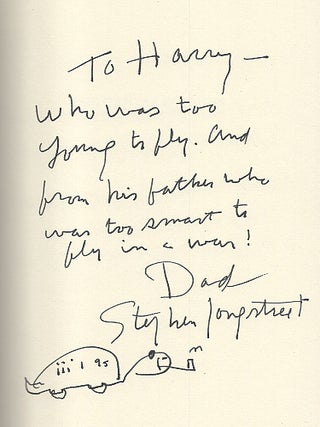 To Harry —
who was too
young to fly. And
from his father who
was too smart to
fly in a war!
Dad
Stephen Longstreet
iii 1 95